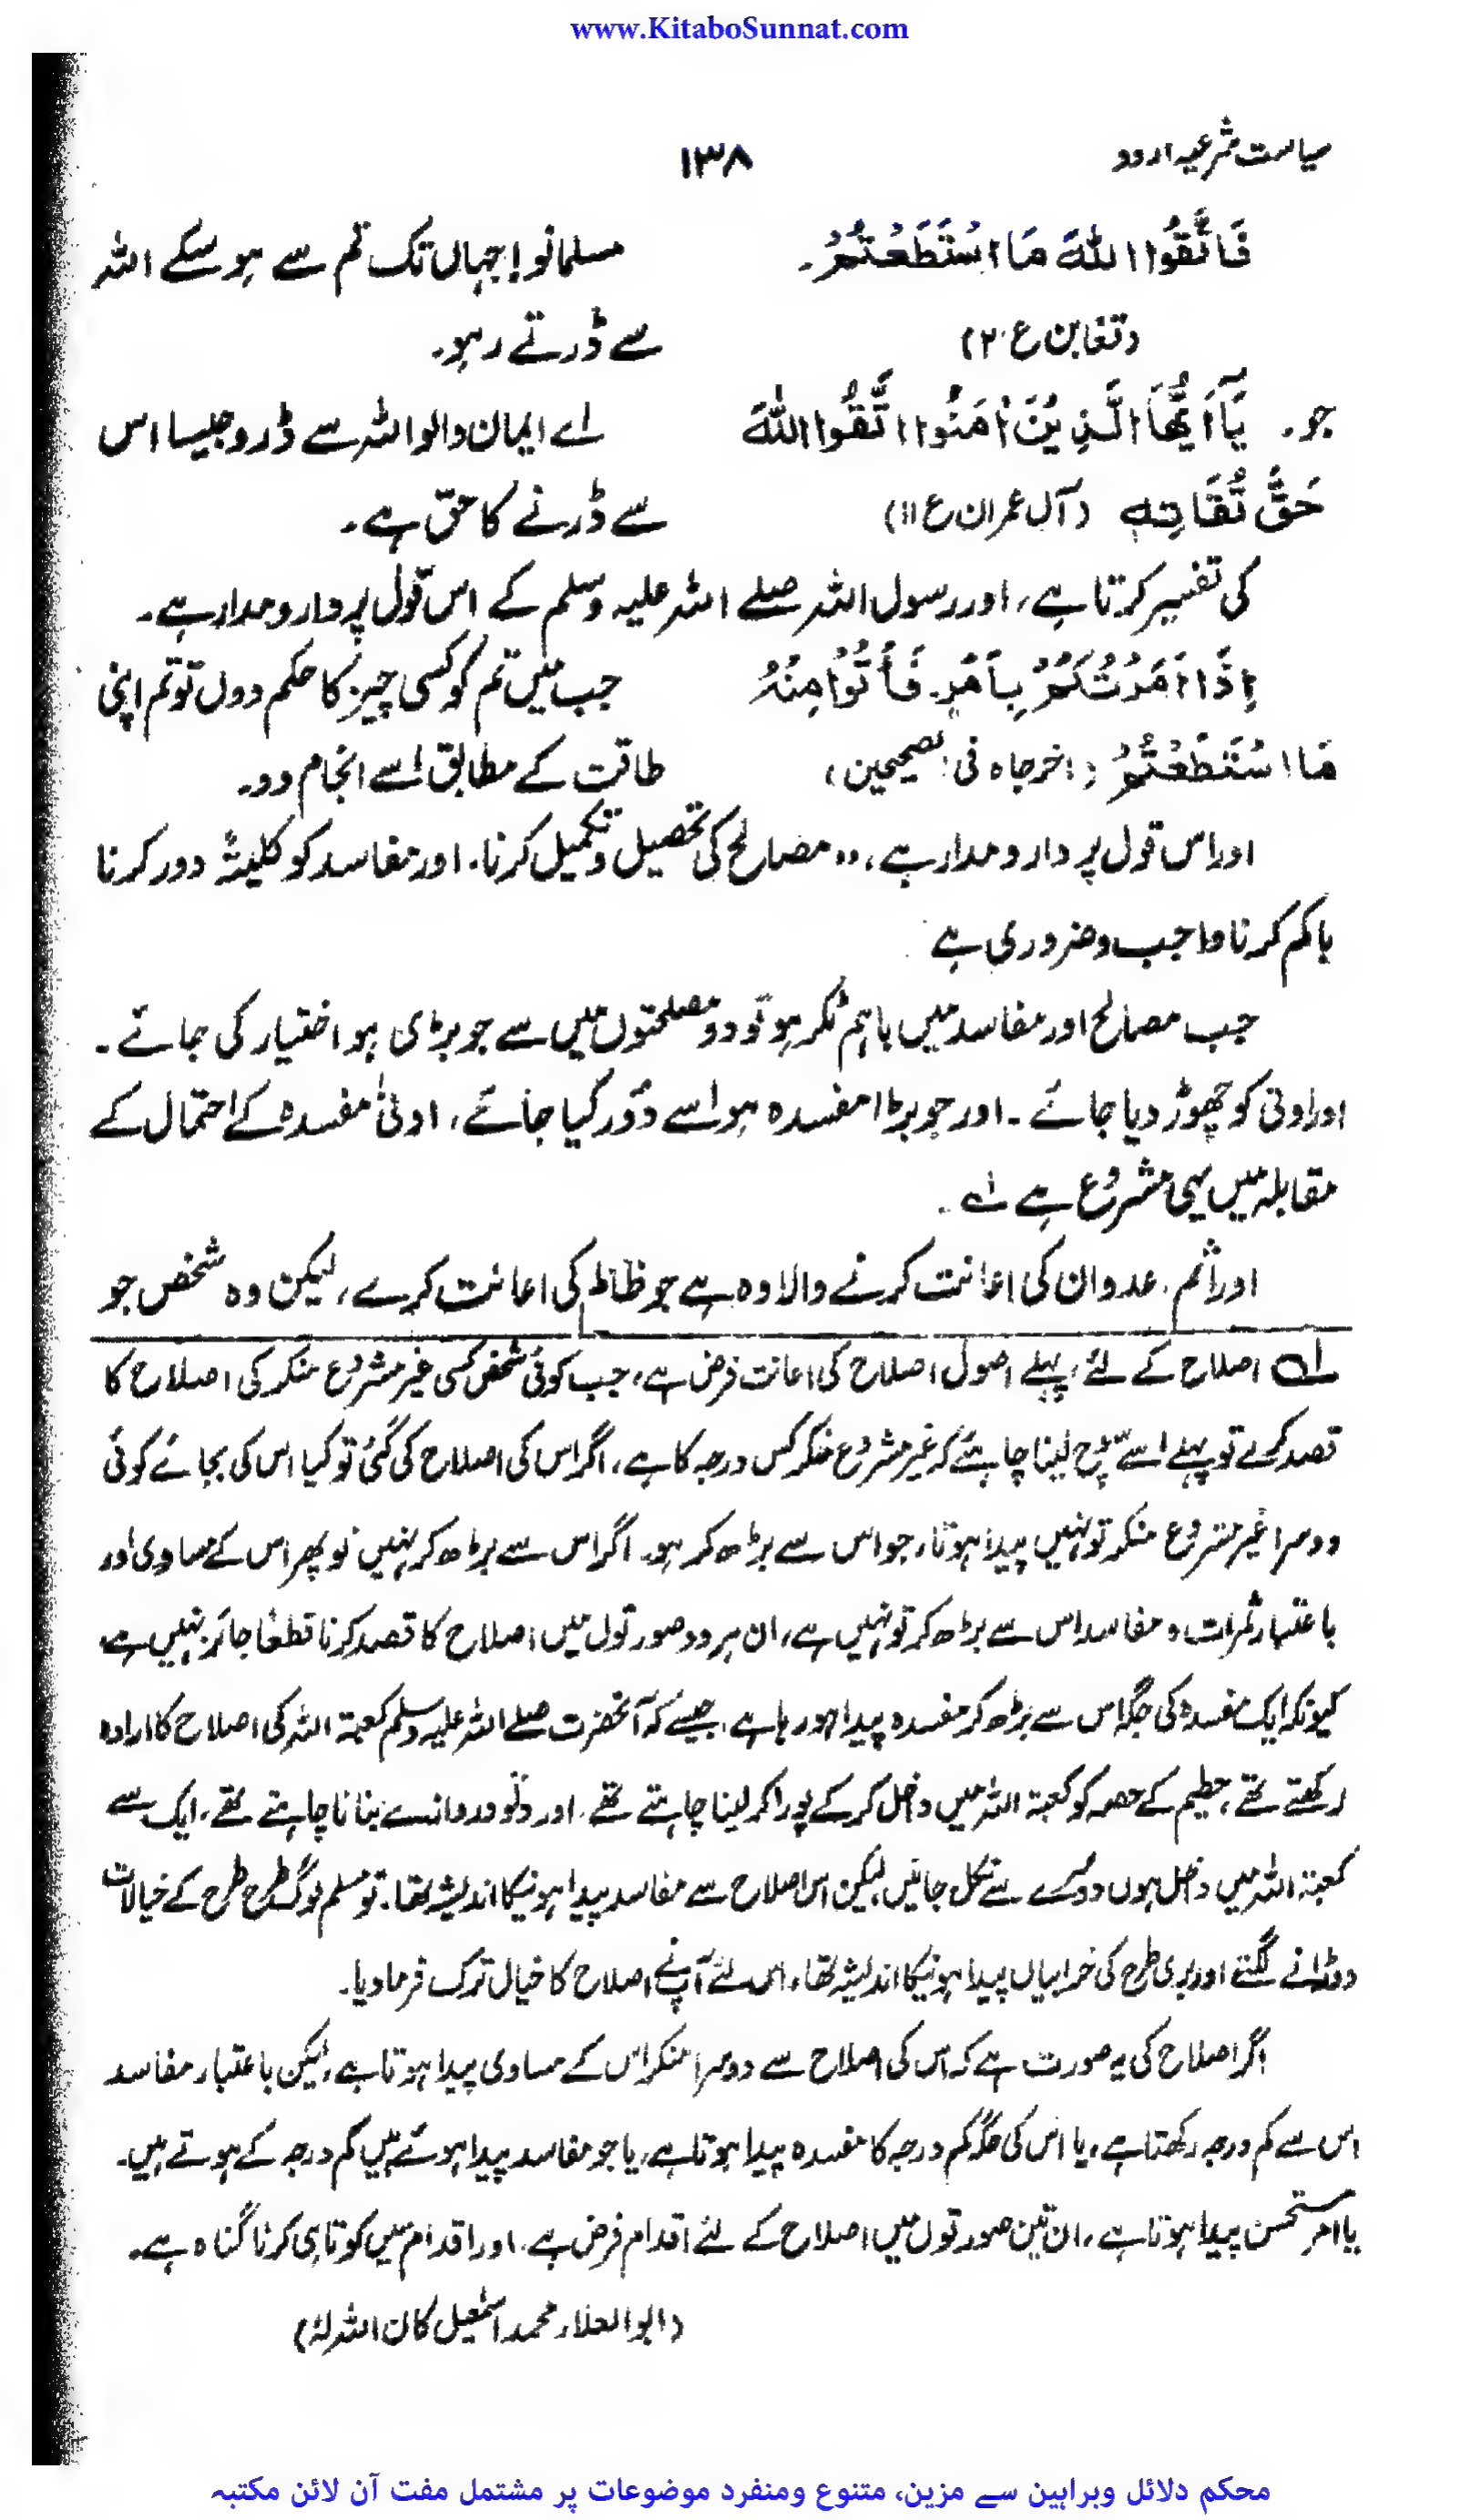 www.KitaboSunnat.com
سیاست شرعیہ اردو ۱۳۸
فَاتَّقُوا اللّٰهَ مَا اسْتَطَعْتُمْ۔ مسلمانو! جہاں تک تم سے ہو سکے اللہ
(تغابن ع ۲) سے ڈرتے رہو۔
جو۔ یٰٓاَیُّهَا الَّذِیْنَ اٰمَنُوا اتَّقُوا اللّٰهَ اے ایمان والو اللہ سے ڈرو جیسا اس
حَقَّ تُقَاتِهٖ (آل عمران ع ۱۱) سے ڈرنے کا حق ہے۔
کی تفسیر کرتا ہے، اور رسول اللہ صلے اللہ علیہ وسلم کے اس قول پر دارومدار ہے۔
اِذَا اَمَرْتُكُمْ بِاَمْرٍ فَأْتُوْا مِنْهُ جب میں تم کو کسی چیز کا حکم دوں تو تم اپنی
مَا اسْتَطَعْتُمْ (اخرجاہ فی الصحیحین) طاقت کے مطابق اسے انجام دو۔
اور اس قول پر دارومدار ہے، مصالح کی تحصیل و تکمیل کرنا۔ اور مفاسد کو کلیتہً دور کرنا
یا کم کرنا واجب و ضروری ہے
جب مصالح اور مفاسد میں باہم ٹکر ہو تو دو مصلحتوں میں سے جو بڑی ہو اختیار کی جائے۔
اور اونی کو چھوڑ دیا جائے۔ اور جو بڑا مفسدہ ہو اسے دُور کیا جائے، ادنیٰ مفسدہ کے احتمال کے
مقابلہ میں یہی مشروع ہے لے۔
اور اثم، عدوان کی اعانت کرنے والا وہ ہے جو ظالم کی اعانت کرے، لیکن وہ شخص جو
لے اصلاح کے لئے، پہلے اصول اصلاح کی اعانت فرض ہے، جب کوئی شخص کسی غیر مشروع منکر کی اصلاح کا
قصد کرے تو پہلے اسے سوچ لینا چاہئے کہ غیر مشروع منکر کس درجہ کا ہے، اگر اس کی اصلاح کی گئی تو کیا اس کی بجائے کوئی
دوسرا غیر مشروع منکر تو نہیں پیدا ہوتا، جو اس سے بڑھ کر ہو۔ اگر اس سے بڑھ کر نہیں تو پھر اس کے مساوی اور
باعتبار ثمرات و مفاسد اس سے بڑھ کر تو نہیں ہے، ان ہر دو صورتوں میں اصلاح کا قصد کرنا قطعاً جائز نہیں ہے،
کیونکہ ایک مفسدہ کی جگہ اس سے بڑھ کر مفسدہ پیدا ہو رہا ہے، جیسے کہ آنحضرت صلے اللہ علیہ وسلم کعبتہ اللہ کی اصلاح کا ارادہ
رکھتے تھے، حطیم کے حصہ کو کعبتہ اللہ میں داخل کر کے پورا کر لینا چاہتے تھے، اور دو دروازے بنانا چاہتے تھے، ایک سے
کعبتہ اللہ میں داخل ہوں دوسرے سے نکل جائیں لیکن اس اصلاح سے مفاسد پیدا ہونیکا اندیشہ تھا، نو مسلم لوگ طرح طرح کے خیالات
دوڑانے لگتے اور بری طرح کی خرابیاں پیدا ہونیکا اندیشہ تھا، اس لئے آپ نے اصلاح کا خیال ترک فرما دیا۔
اگر اصلاح کی یہ صورت ہے کہ اس کی اصلاح سے دوسرا منکر اس کے مساوی پیدا ہوتا ہے، لیکن باعتبار مفاسد
اس سے کم درجہ رکھتا ہے، یا اس کی جگہ کم درجہ کا مفسدہ پیدا ہوتا ہے، یا جو مفاسد پیدا ہوئے ہیں کم درجہ کے ہوتے ہیں۔
یا امر مستحسن پیدا ہوتا ہے، ان تین صورتوں میں اصلاح کے لئے اقدام فرض ہے، اور اقدام میں کوتاہی کرنا گناہ ہے۔
(ابو العلاء محمد اسمٰعیل کان اللہ لہٗ)
محکم دلائل وبراہین سے مزین، متنوع ومنفرد موضوعات پر مشتمل مفت آن لائن مکتبہ